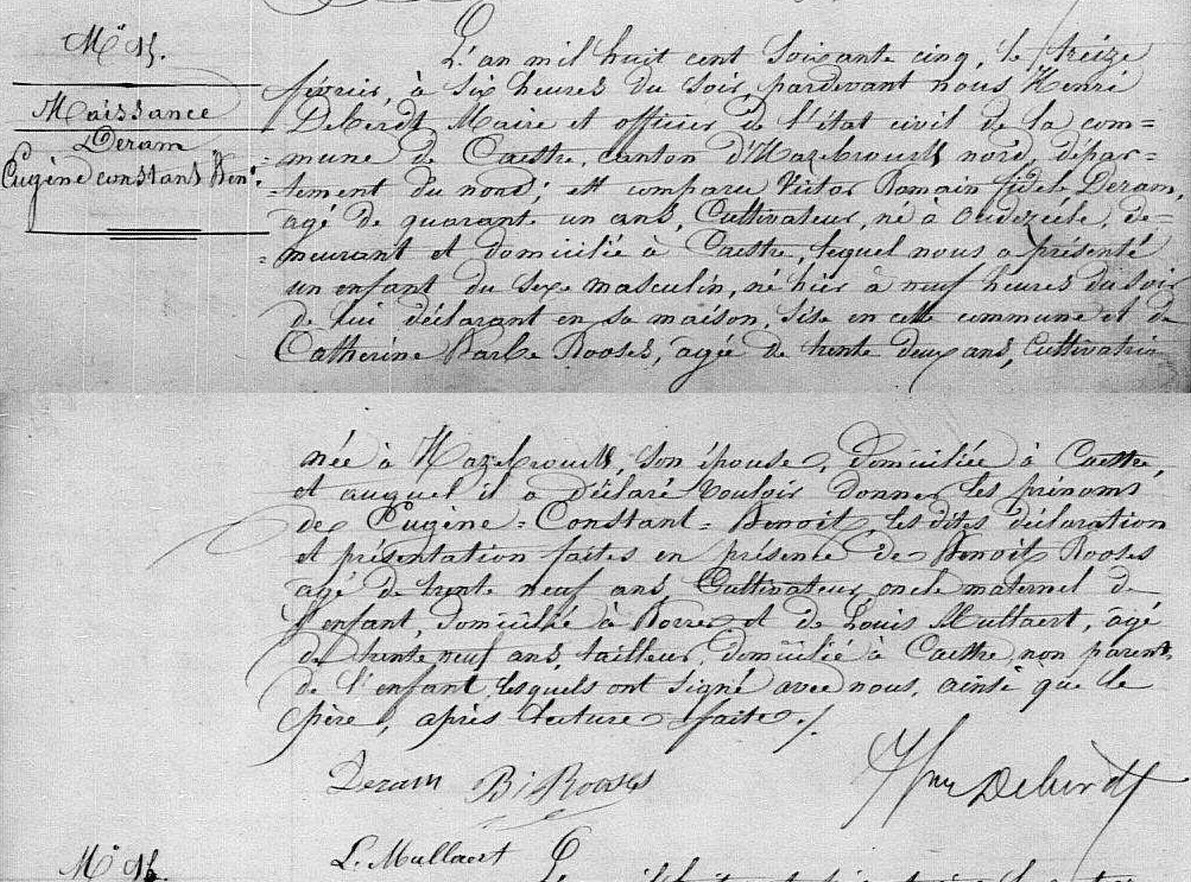 N° 15.
Naissance
Deram
Eugène constant Ben.t
L'an mil huit cent soixante cinq, le treize
février, à six heures du soir, pardevant nous Henri
Deberdt Maire et officier de l'état civil de la com=
=mune de Caestre, canton d'Hazebrouck nord, dépar=
=tement du nord; est comparu Victor Romain fidele Deram,
agé de quarante un ans, Cultivateur, né à Oudezeele, de=
=meurant et domicilié à Caestre, lequel nous a présenté
un enfant du sexe masculin, né hier à neuf heures du soir
de lui déclarant en sa maison, sise en cette commune et de
Catherine Barbe Rooses, âgée de trente deux ans, Cultivatrice
née à Hazebrouck, son épouse, domiciliée à Caestre,
et auquel il a déclaré vouloir donner les prénoms
de Eugène=Constant=Benoit, les dites déclaration
et présentation faites en présence de Benoit Rooses
agé de trente neuf ans, Cultivateur, oncle maternel de
l'enfant, domicilié à Borre, et de Louis Mullaert, âgé
de trente neuf ans, tailleur, domicilié à Caestre non parent
de l'enfant, lesquels ont signé avec nous, ainsi que le
père, après lecture faite./
Deram B. Rooses Hry Deberdt
L. Mullaert
N° 16.